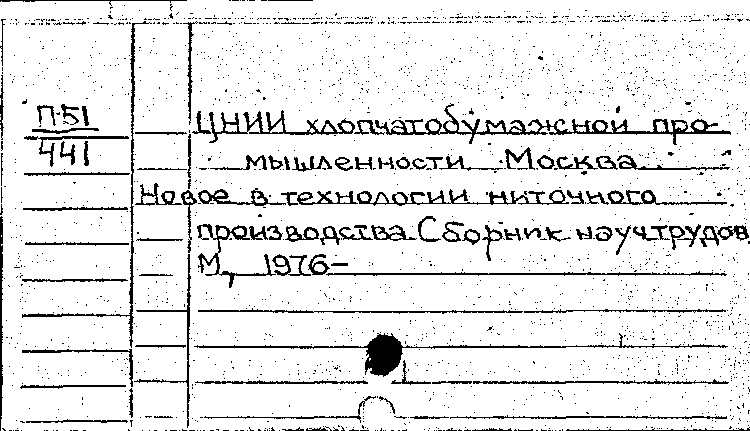 П51
441
ЦНИИ хлопчатобумажной про-
мышленности. Москва.
Новое в технологии ниточного
производства. Сборник науч.трудов
М, 1976-